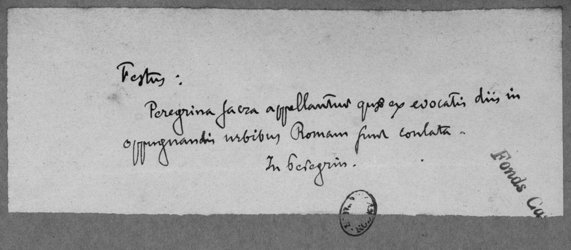 Festus :
Peregrina sacra appellantur quae ex evocatis diis in
oppugnandis urbibus Romam sunt conlata.
In Peregrin.
Fonds Ca